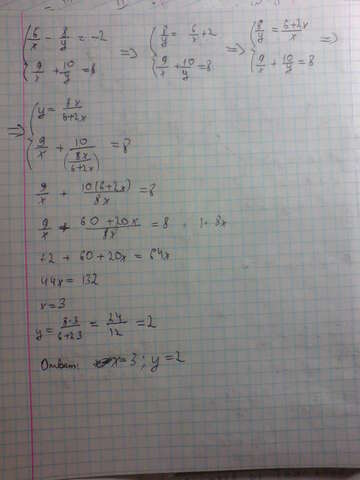 { 6/x - 8/y = -2 ⇒ { 8/y = 6/x + 2 ⇒ { 8/y = (6+2x)/x ⇒
{ 9/x + 10/y = 8 { 9/x + 10/y = 8 { 9/x + 10/y = 8
⇒ { y = 8x/(6+2x)
{ 9/x + 10/(8x/(6+2x)) = 8
9/x + 10(6+2x)/8x = 8
9/x + (60+20x)/8x = 8 | · 8x
72 + 60 + 20x = 64x
44x = 132
x = 3
y = 8·3/(6+2·3) = 24/12 = 2
Ответ: x = 3; y = 2